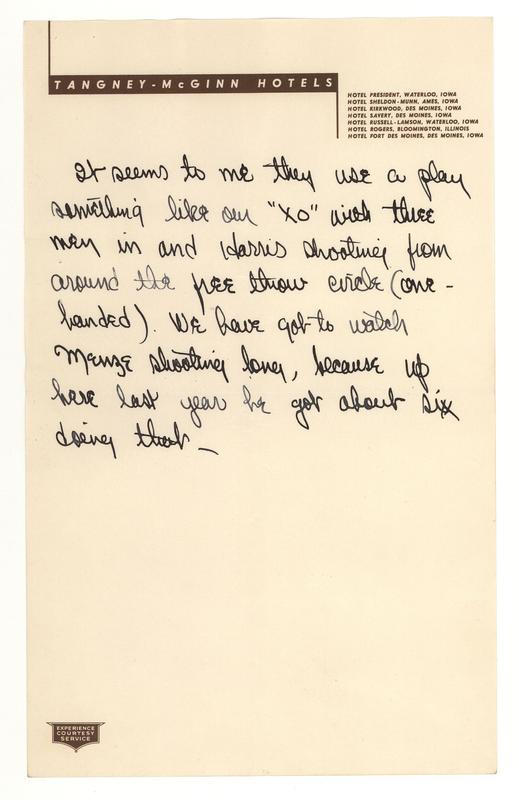 TANGNEY-McGINN HOTELS
HOTEL PRESIDENT, WATERLOO, IOWA
HOTEL SHELDON-MUNN, AMES, IOWA
HOTEL KIRKWOOD, DES MOINES, IOWA
HOTEL SAVERY, DES MOINES, IOWA
HOTEL RUSSELL-LAMSON, WATERLOO, IOWA
HOTEL ROGERS, BLOOMINGTON, ILLINOIS
HOTEL FORT DES MOINES, DES MOINES, IOWA
It seems to me they use a play
something like our "XO" with three
men in and Harris shooting from
around the free throw circle (one-
handed). We have got to watch
Menze shooting long, because up
here last year he got about six
doing that –
EXPERIENCE
COURTESY
SERVICE